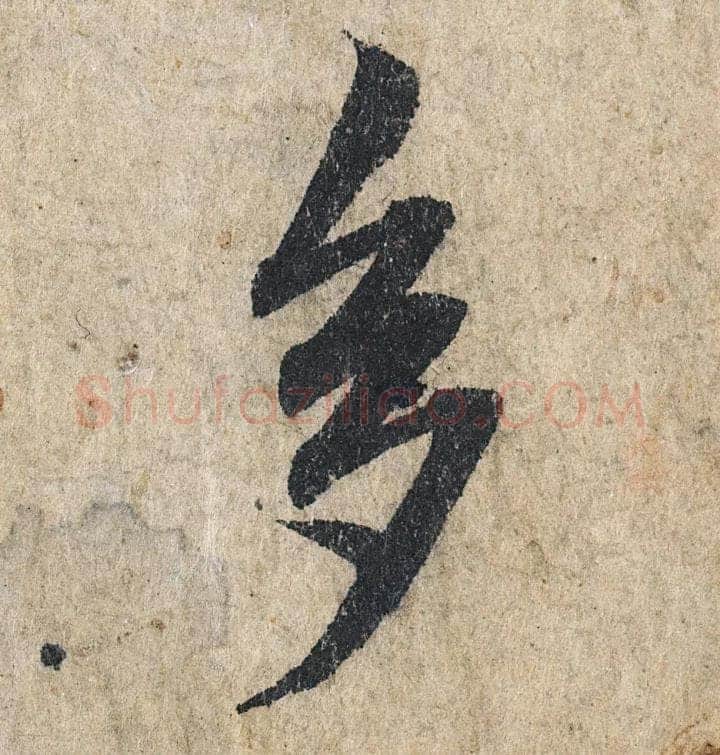 多
Shufaziliao.COM